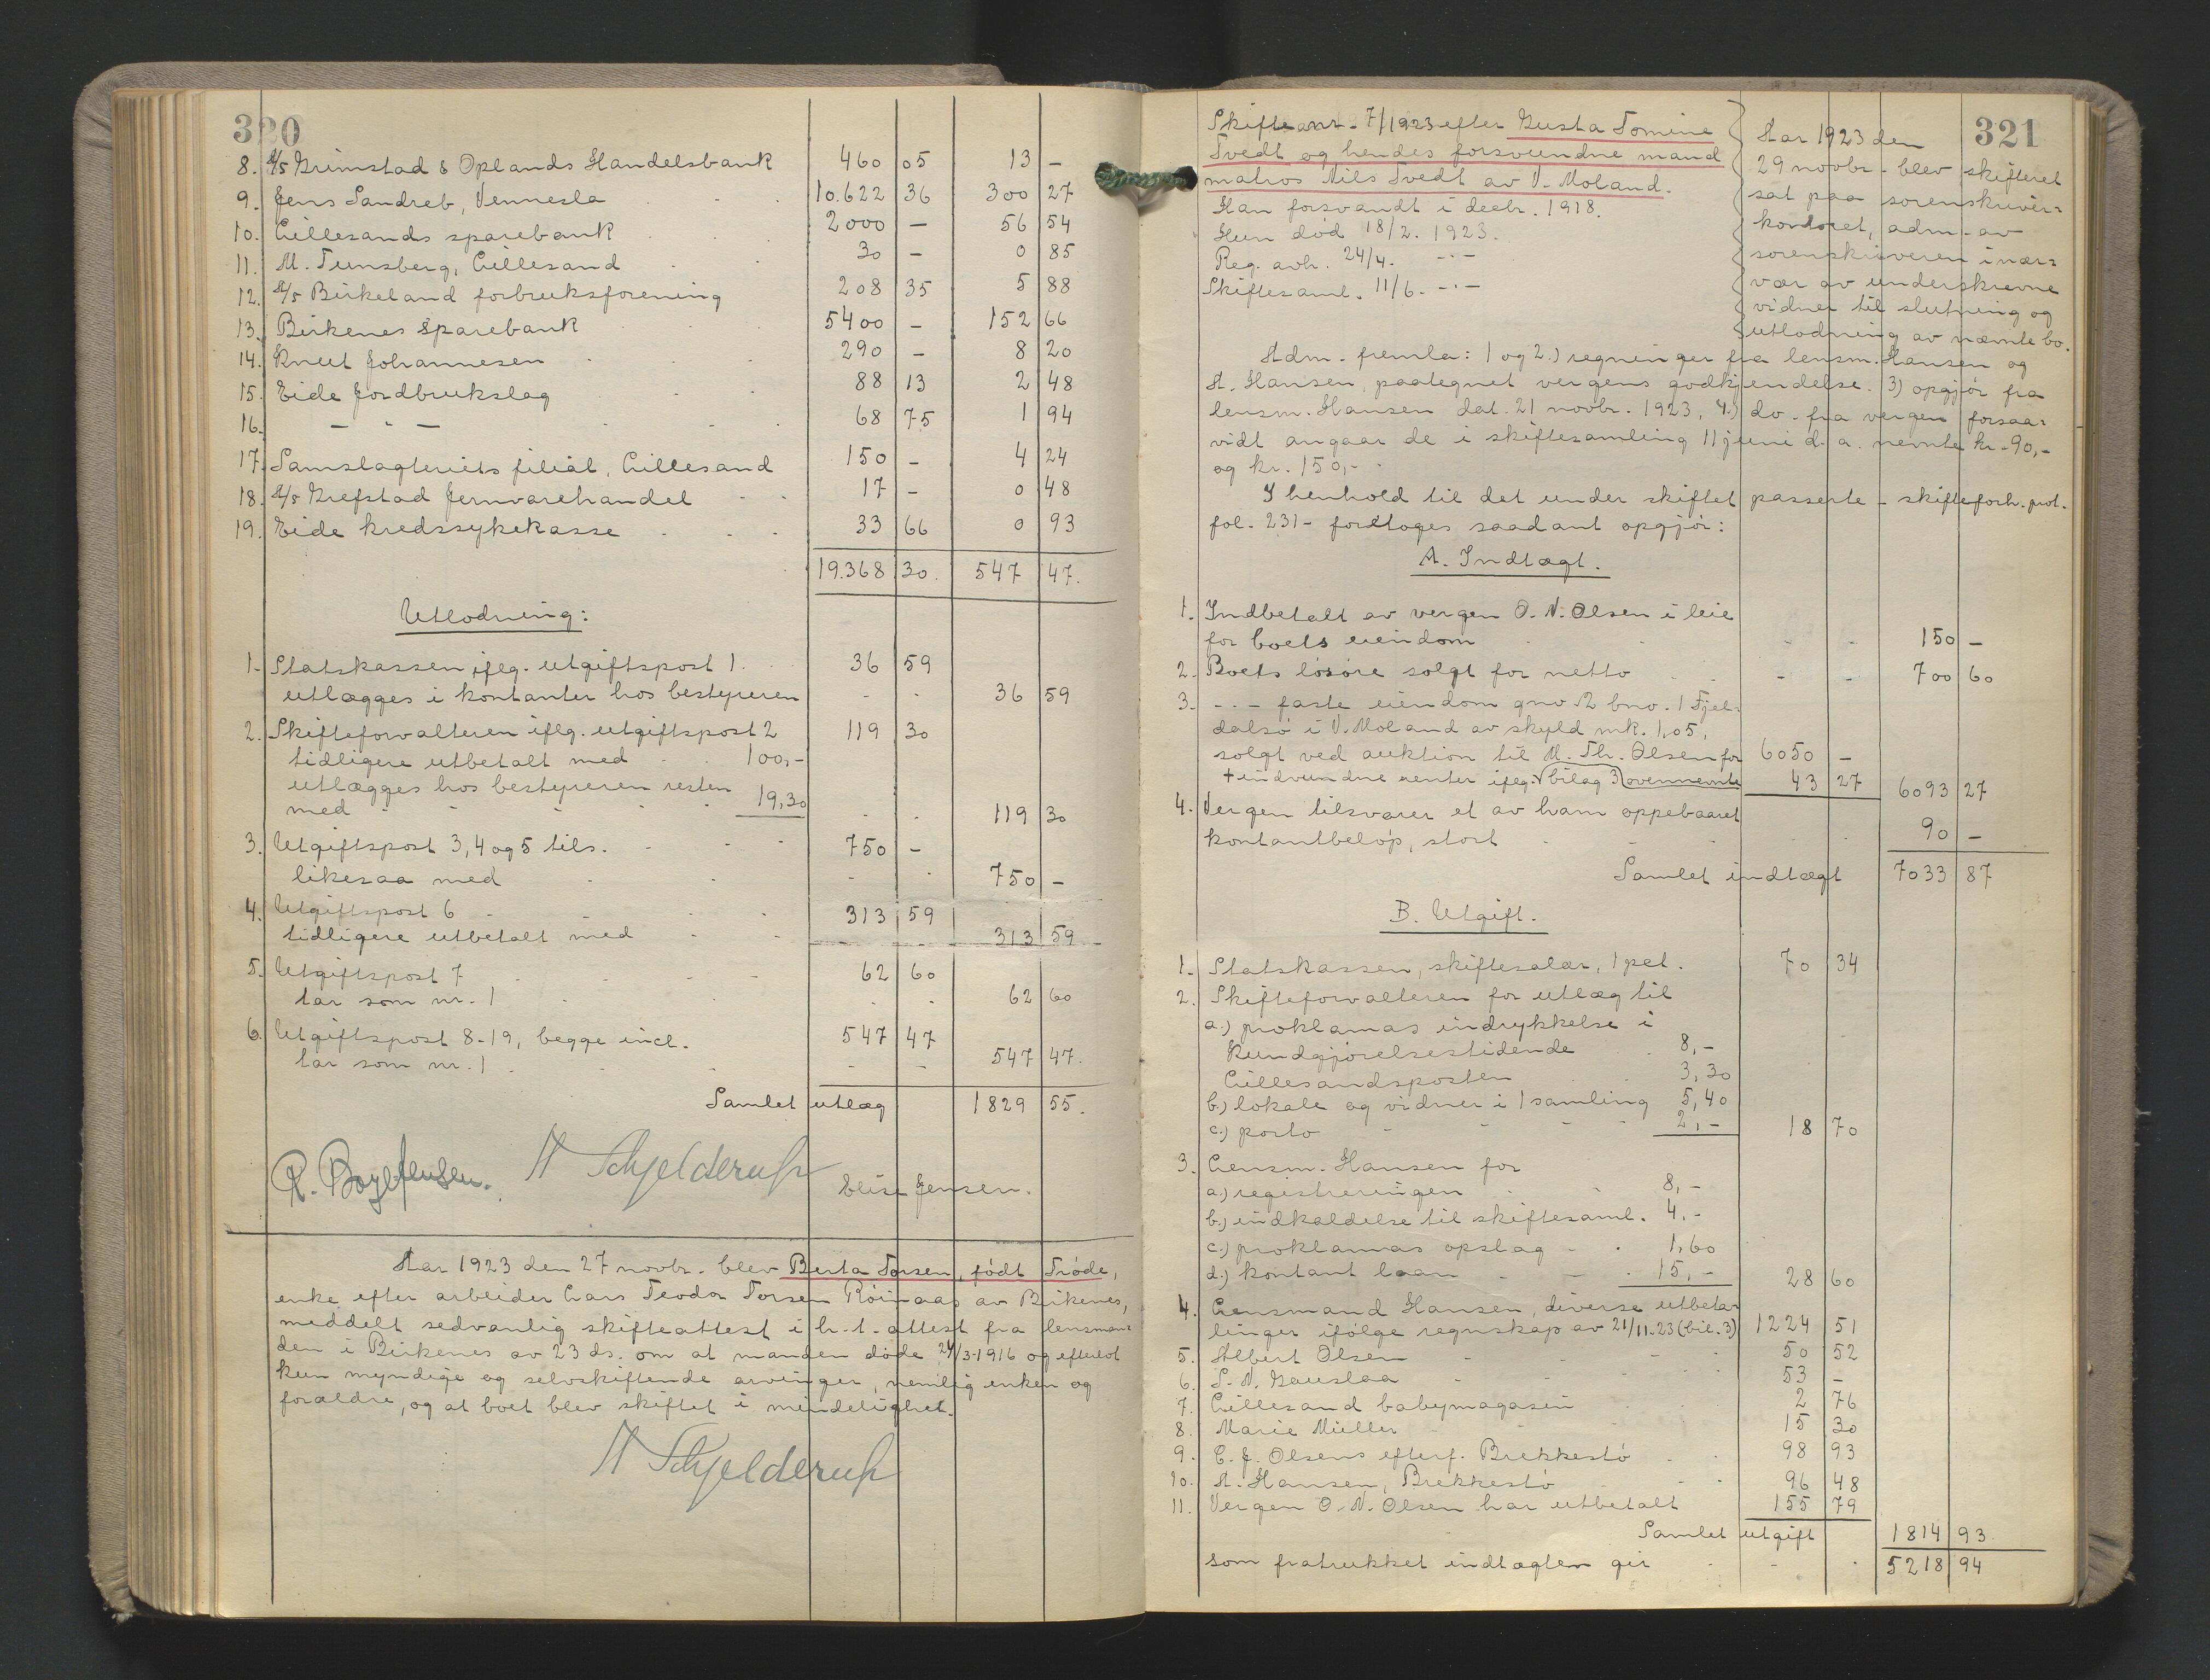 320
8. A/S Grimstad & Oplands Handelsbank 460 05 13 –
9. Jens Landreb, Vennesla 10.622 36 300 27
10. Lillesands sparebank 2000 – 56 54
11. M. Tunsberg, Lillesand 30 – 0 85
12. A/S Birkeland forbruksforening 208 35 5 88
13. Birkenes sparebank 5400 – 152 66
14. Knut Johannesen 290 – 8 20
15. Eide Jordbrukslag 88 13 2 48
16. – " – 68 75 1 94
17. Samslagteriets filial, Lillesand 150 – 4 24
18. A/S Grefstad Jernvarehandel 17 – 0 48
19. Eide kredssykekasse 33 66 0 93
19.368 30. 547 47.
Utlodning:
1. Statskassen ifлg. utgiftspost 1. 36 59
utlægges i kontanter hos bestyreren 36 59
2. Skifteforvalteren iflg. utgiftspost 2 119 30
tidligere utbetalt med 100,-
utlægges hos bestyreren resten
med 19,30 119 30
3. Utgiftspost 3, 4 og 5 tils. 750 –
likesaa med 750 –
4. Utgiftspost 6 313 59
tidligere utbetalt med 313 59
5. Utgiftspost 7 62 60
tar som nr. 1 62 60
6. Utgiftspost 8-19, begge incl. 547 47
tar som nr. 1. 547 47.
Samlet utlæg 1829 55.
R. Boye Jensen. A Schjelderup Elise Jensen.
Aar 1923 den 27 novbr. blev Berta Torsen, født Trøde,
enke efter arbeider Lars Teodor Torsen Röinaas av Birkenes,
meddelt sedvanlig skifteattest i h.t. attest fra lensman-
den i Birkenes av 23 ds. om at manden døde 24/3-1916 og efterlot
kun myndige og selvskiftende arvinger, nemlig enken og
forældre, og at boet blev skiftet i mindelighet.
A Schjelderup
321
Skifteanr. 7/1923 efter Gusta Tomine
Tvedt og hendes forsvundne mand
matros Nils Tvedt av V. Moland.
Han forsvandt i decbr. 1918.
Hun död 18/2. 1923.
Reg. avh. 24/4. –"–
Skiftesaml. 11/6. –"–
Aar 1923 den
29 novbr. blev skifteret
sat paa sorenskriver-
kontoret, adm. av
sorenskriveren i nær-
vær av underskrevne
vidner til slutning og
utlodning av nævnte bo.
Adm. fremla: 1 og 2.) regninger fra lensm. Hansen og
A. Hansen, paategnet vergens godkjendelse. 3) opgjör fra
lensm. Hansen dat. 21 novbr. 1923, 4.) do. fra vergen forsaa-
vidt angaar de i skiftesamling 11 juni d.a. nevnte kr. 90,-
og kr. 150,-.
I henhold til det under skiftet passerte – skifteforh. prot.
fol. 231 – foretoges saadant opgjör:
A. Indtægt.
1. Indbetalt av vergen O. N. Olsen i leie
for boets eiendom 150 –
2. Boets lösöre solgt for netto 700 60
3. –"– faste eiendom gno 2 bno. 1 Fjel-
dalsö i V. Moland av skyld mk. 1,05,
solgt ved auktion til M. Th. Olsen for 6050 –
+ indvundne renter ifлg. ovennevnte bilag 3 43 27 6093 27
4. Vergen tilsvarer et av ham oppebaaret
kontantbelöp, stort 90 –
Samlet indtægt 7033 87
B. Utgift.
1. Statskassen, skiftesalær, 1 pct. 70 34
2. Skifteforvalteren for utlæg til
a.) proklamas indrykkelse i
Kundgjörelsestidende 8,-
Lillesandsposten 3,30
b.) lokale og vidner i 1 samling 5,40
c.) porto 2,- 18 70
3. Lensm. Hansen for
a.) registreringen 8,-
b.) indkaldelse til skiftesaml. 4,-
c.) proklamas opslag 1,60
d.) kontant laan 15,- 28 60
4. Lensmand Hansen, diverse utbeta-
linger ifölge regnskap av 21/11-23 (bil. 3) 1224 51
5. Albert Olsen 50 52
6. S. N. Gauslaa 53 –
7. Lillesand babymagasin 2 76
8. Marie Müller 15 30
9. C. J. Olsens efterf. Brekkestö 98 93
10. A. Hansen, Brekkestö 96 48
11. Vergen O. N. Olsen har utbetalt 155 79
Samlet utgift 1814 93.
som fratrukket indtægten gir 5218 94